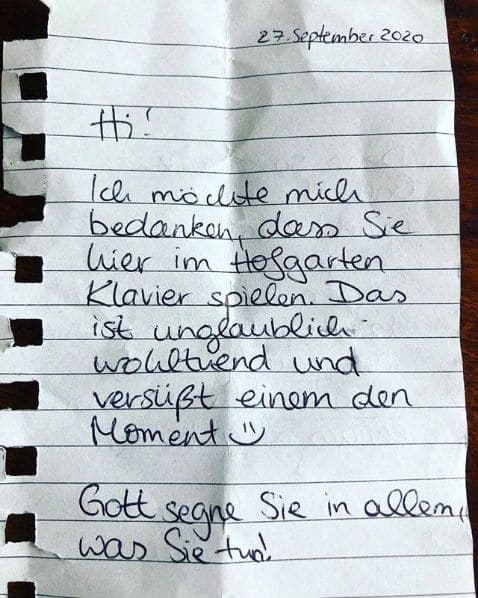 27. September 2020
Hi!
Ich möchte mich
bedanken, dass Sie
hier im Hofgarten
Klavier spielen. Das
ist unglaublich
wohltuend und
versüßt einem den
Moment :)
Gott segne Sie in allem,
was Sie tun!